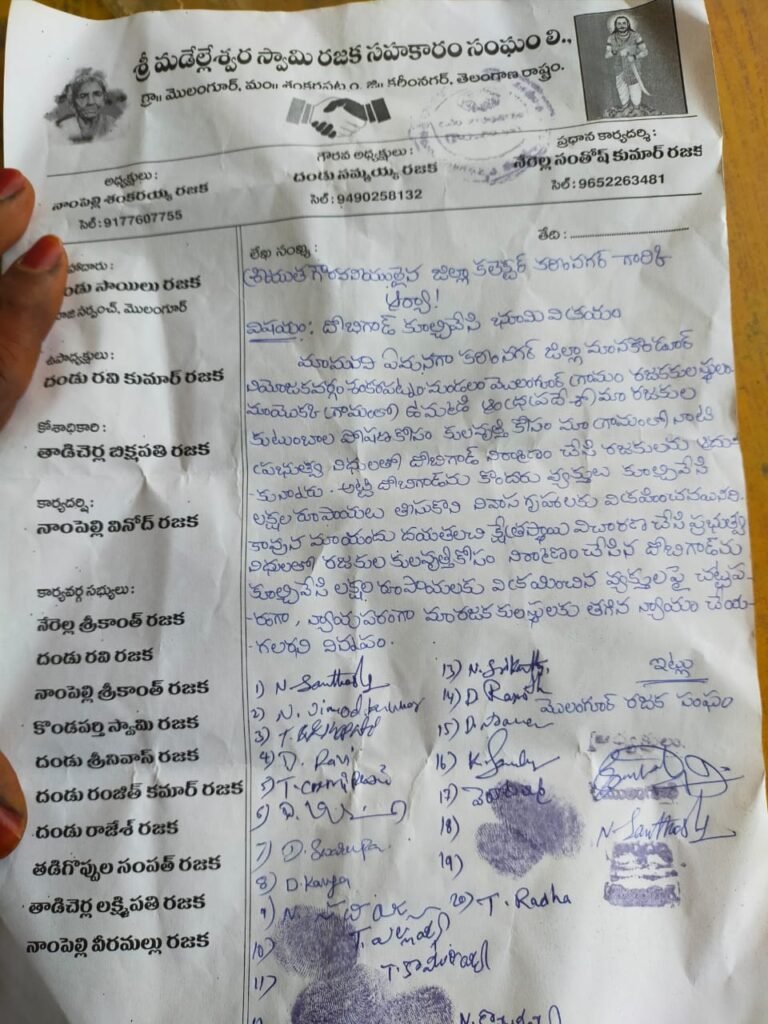 శ్రీ మడేల్లేశ్వర స్వామి రజక సహకారం సంఘం లి.,
గ్రా॥ మొలంగూర్, మం॥ శంకరపట్నం, జి॥ కరీంనగర్, తెలంగాణ రాష్ట్రం.
అధ్యక్షులు :
నాంపెల్లి శంకరయ్య రజక
సెల్: 9177607755
గౌరవ అధ్యక్షులు :
దండు సమ్మయ్య రజక
సెల్: 9490258132
ప్రధాన కార్యదర్శి :
నేరెల్ల సంతోష్ కుమార్ రజక
సెల్: 9652263481
దండు సాయిలు రజక
మాజీ సర్పంచ్, మొలంగూర్
ఉపాధ్యక్షులు:
దండు రవి కుమార్ రజక
కోశాధికారి :
తాడిచెర్ల బిక్షపతి రజక
కార్యదర్శి:
నాంపెల్లి వినోద్ రజక
కార్యవర్గ సభ్యులు:
నేరెల్ల శ్రీకాంత్ రజక
దండు రవి రజక
నాంపెల్లి శ్రీకాంత్ రజక
కొండపర్తి స్వామి రజక
దండు శ్రీనివాస్ రజక
దండు రంజిత్ కమార్ రజక
దండు రాజేశ్ రజక
తడిగొప్పుల సంపత్ రజక
తాడిచెర్ల లక్ష్మిపతి రజక
నాంపెల్లి వీరమల్లు రజక
లేఖ సంఖ్య :
తేది : ..................
శ్రీయుత గౌరవనీయులైన జిల్లా కలెక్టర్ కరీంనగర్ గారికి
ఆర్యా!
విషయం: దోబిగాడ్ కూల్చివేసి భూమి విక్రయం
మామనవి ఏమనగా కరీంనగర్ జిల్లా మానకొండూర్
నియోజకవర్గం శంకరపట్నం మండలం మొలంగూర్ గ్రామం రజకకులస్థులం
మాయొక్క గ్రామంలో ఉమ్మడి ఆంధ్రప్రదేశ్‌లో మా రజకుల
కుటుంబాల పోషణకోసం కులవృత్తి కోసం మా గ్రామంలో నాటి
ప్రభుత్వ నిధులతో దోబిగాడ్ నిర్మాణం చేసి రజకులను ఆదు-
-కున్నారు. అట్టి దోబిగాడ్‌ను కొందరు వ్యక్తులు కూల్చివేసి
లక్షల రూపాయలు తీసుకొని నివాస గృహాలకు విక్రయించనయినది.
కావున మాయందు దయతలచి క్షేత్రస్థాయి విచారణ చేసి ప్రభుత్వ
నిధులతో రజకుల కులవృత్తికోసం నిర్మాణం చేసిన దోబిగాడ్‌ను
కూల్చివేసి లక్షల రూపాయలకు విక్రయించిన వ్యక్తులపై చట్టప-
-రంగా, న్యాయపరంగా మా రజక కులస్థులకు తగిన న్యాయం చేయ-
-గలరని విన్నపం.
ఇట్లు
మొలంగూర్ రజక సంఘం
1) N. Santhosh
2) N. Vinod kumar
3) T.
4) D. Ravi
5) T.
6) D.
7) D.
8) D. Kavya
9) N.
10) T. ఎల్లయ్య
T.
11)
13) N. Srikanth
14) D Ramesh
15) D.
16) K.
17)
18)
19)
20) T. Radha
N. Santhosh